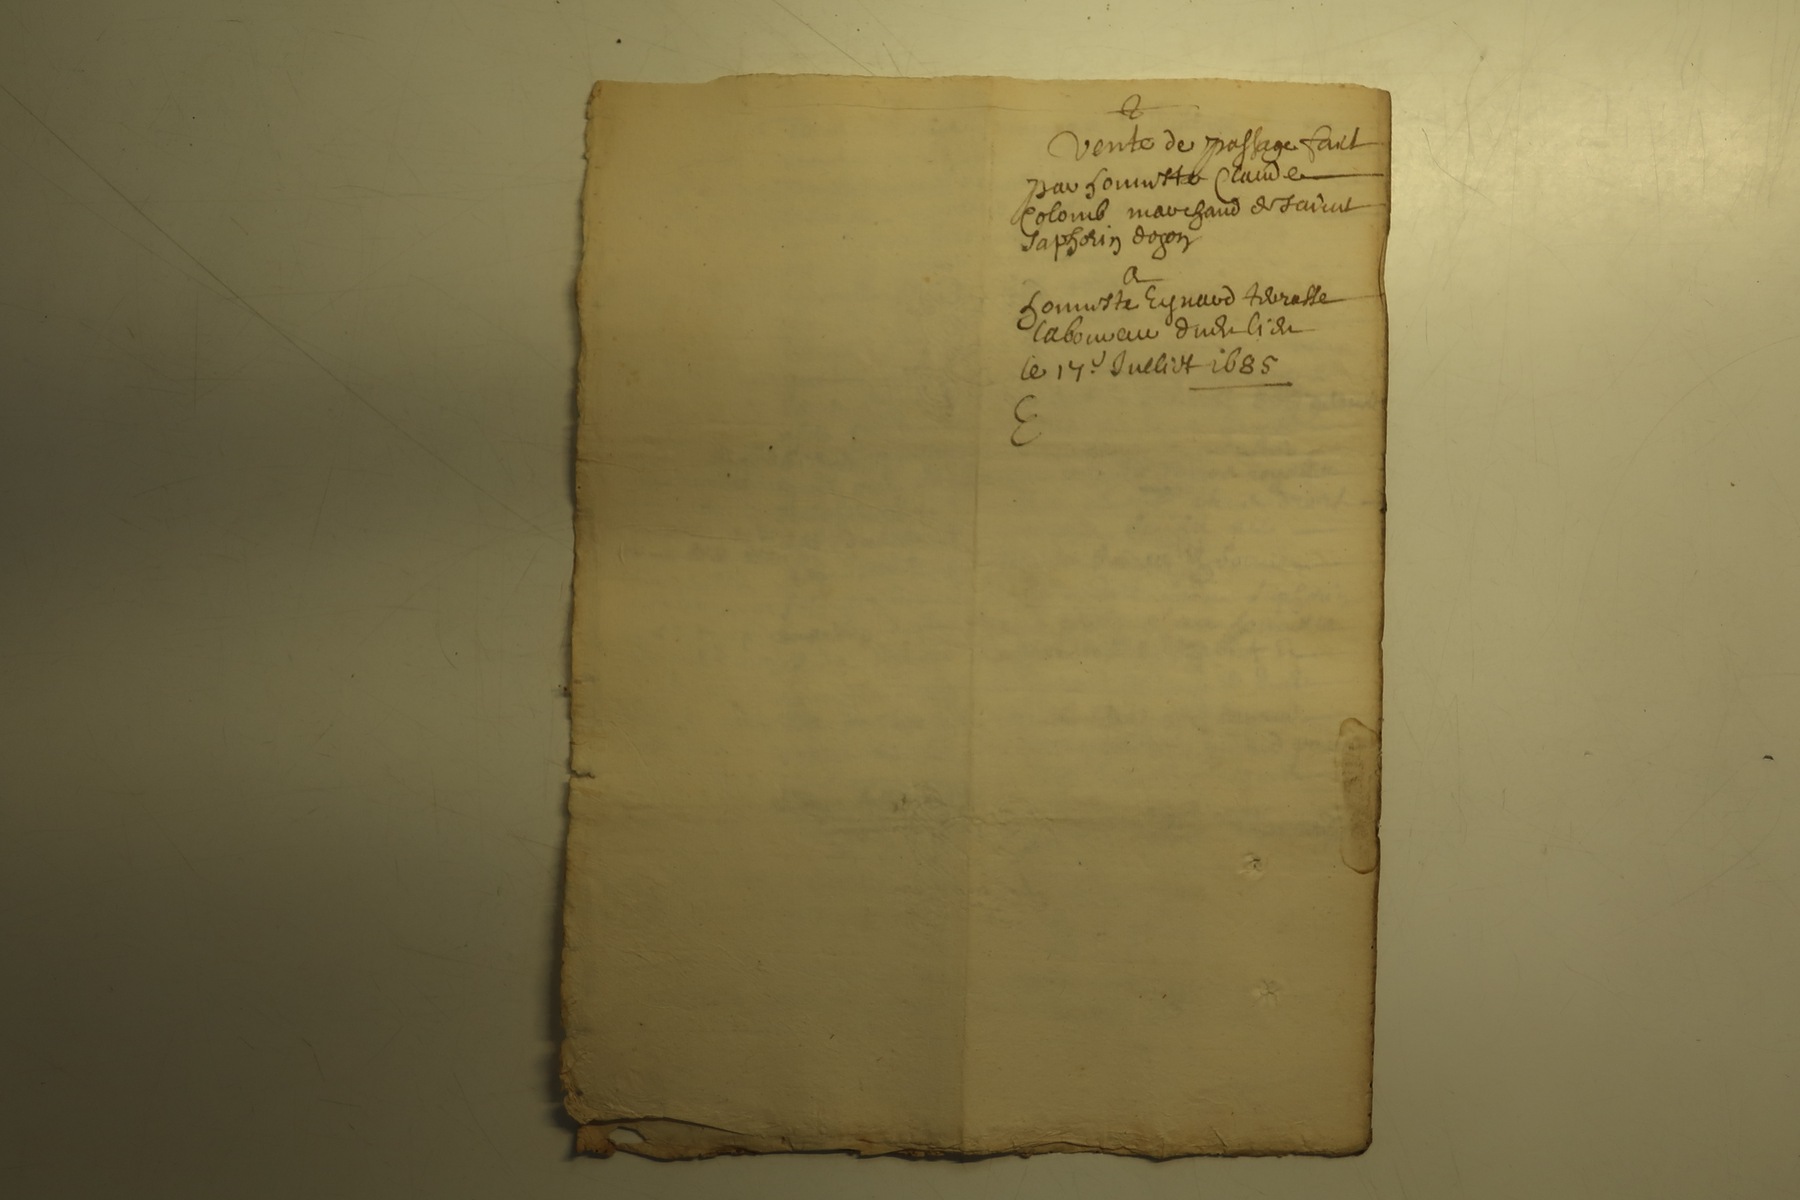 2
Vente de passage faict
par honneste Claude
Colomb marchand de sainct
saphorin dozon
a
honneste Eynard terrasse
laboureur dudit lieu
le 17e Julliet 1685
E